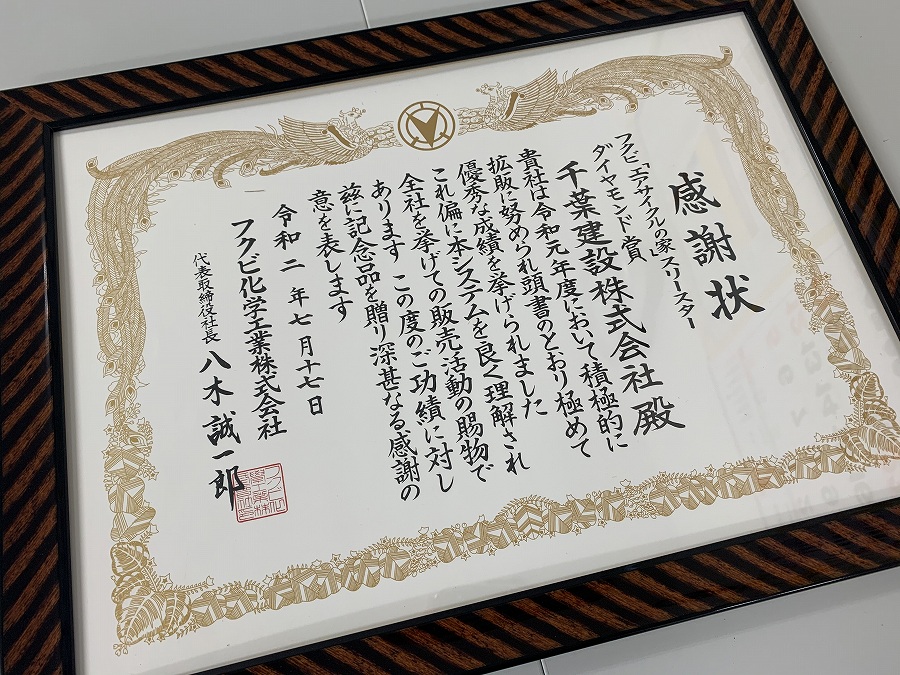 感謝状
フクビ「エアサイクルの家」スリースター
ダイヤモンド賞
千葉建設株式会社殿
貴社は令和元年度において積極的に
拡販に努められ頭書のとおり極めて
優秀な成績を挙げられました
これ偏に本システムを良く理解され
全社を挙げての販売活動の賜物で
あります この度のご功績に対し
茲に記念品を贈り深甚なる感謝の
意を表します
令和二年七月十七日
フクビ化学工業株式会社
代表取締役社長 八木誠一郎